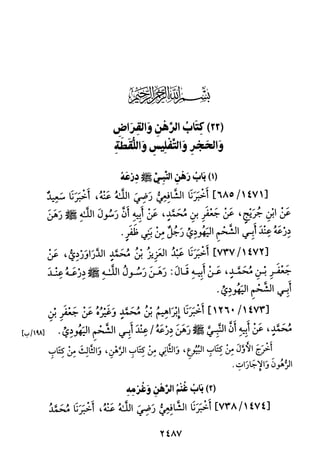 بِسْمِ اللَّهِ الرَّحْمَنِ الرَّحِيمِ
(٢٢) كِتَابُ الرَّهْنِ وَالقِرَاضِ
وَالحَجْرِ وَالتَّفْلِيسِ وَاللُّقَطَةِ
(١) بَابُ رَهْنِ النَّبِيِّ ﷺ دِرْعَهُ
[٦٨٥/١٤٧١] أَخْبَرَنَا الشَّافِعِيُّ رَضِيَ اللَّـهُ عَنْهُ، أَخْبَرَنَا سَعِيدٌ
عَنْ ابْنِ جُرَيْجٍ، عَنْ جَعْفَرِ بنِ مُحَمَّدٍ، عَنْ أَبِيهِ أَنَّ رَسُولَ اللَّـهِ ﷺ رَهَنَ
دِرْعَهُ عِنْدَ أَبِي الشَّحْمِ اليَهُودِيِّ رَجُلٌ مِنْ بَنِي ظَفَرٍ.
[٧٣٧/١٤٧٢] أَخْبَرَنَا عَبْدُ العَزِيزِ بْنُ مُحَمَّدٍ الدَّرَاوَرْدِيُّ، عَنْ
جَعْفَرِ بْنِ مُحَمَّدٍ، عَنْ أَبِيهِ قَالَ: رَهَنَ رَسُولُ اللَّـهِ ﷺ دِرْعَهُ عِنْدَ
أَبِي الشَّحْمِ اليَهُودِيِّ.
[١٢٦٠/١٤٧٣] أَخْبَرَنَا إِبْرَاهِيمُ بْنُ مُحَمَّدٍ وَغَيْرُهُ عَنْ جَعْفَرِ بْنِ
مُحَمَّدٍ، عَنْ أَبِيهِ أَنَّ النَّبِيَّ ﷺ رَهَنَ دِرْعَهُ / عِنْدَ أَبِي الشَّحْمِ اليَهُودِيِّ. [١٩٨/ب]
أَخْرَجَ الأَوَّلَ مِنْ كِتَابِ البُيُوعِ، وَالثَّانِي مِنْ كِتَابِ الرَّهْنِ، وَالثَّالِثَ مِنْ كِتَابِ
الرُّهُونِ وَالإِجَارَاتِ.
(٢) بَابُ غُنْمُ الرَّهْنِ وَغُرْمِهِ
[٧٣٨/١٤٧٤] أَخْبَرَنَا الشَّافِعِيُّ رَضِيَ اللَّـهُ عَنْهُ، أَخْبَرَنَا مُحَمَّدُ
٢٤٨٧